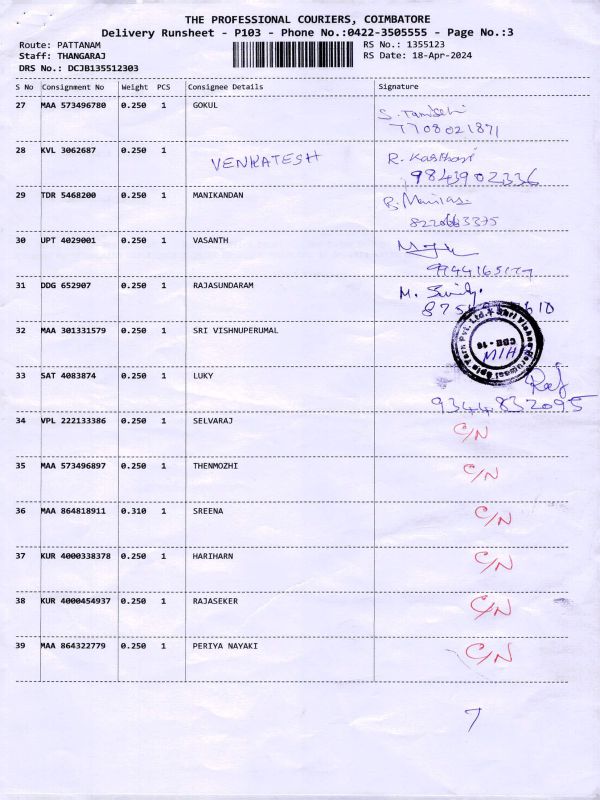 THE PROFESSIONAL COURIERS, COIMBATORE
Delivery Runsheet - P103 - Phone No.:0422-3505555 - Page No.:3
Route: PATTANAM RS No.: 1355123
Staff: THANGARAJ RS Date: 18-Apr-2024
DRS No.: DCJB135512303
S No Consignment No Weight PCS Consignee Details Signature
27 MAA 573496780 0.250 1 GOKUL
7708021871
28 KVL 3062687 0.250 1 VENKATESH R. Kasthori
9843902336
29 TDR 5468200 0.250 1 MANIKANDAN
30 UPT 4029001 0.250 1 VASANTH
31 DDG 652907 0.250 1 RAJASUNDARAM
32 MAA 301331579 0.250 1 SRI VISHNUPERUMAL
CBE - 16
33 SAT 4083874 0.250 1 LUKY Raj
9344832095
34 VPL 222133386 0.250 1 SELVARAJ C/N
35 MAA 573496897 0.250 1 THENMOZHI C/N
36 MAA 864818911 0.310 1 SREENA C/N
37 KUR 4000338378 0.250 1 HARIHARN C/N
38 KUR 4000454937 0.250 1 RAJASEKER C/N
39 MAA 864322779 0.250 1 PERIYA NAYAKI C/N
7